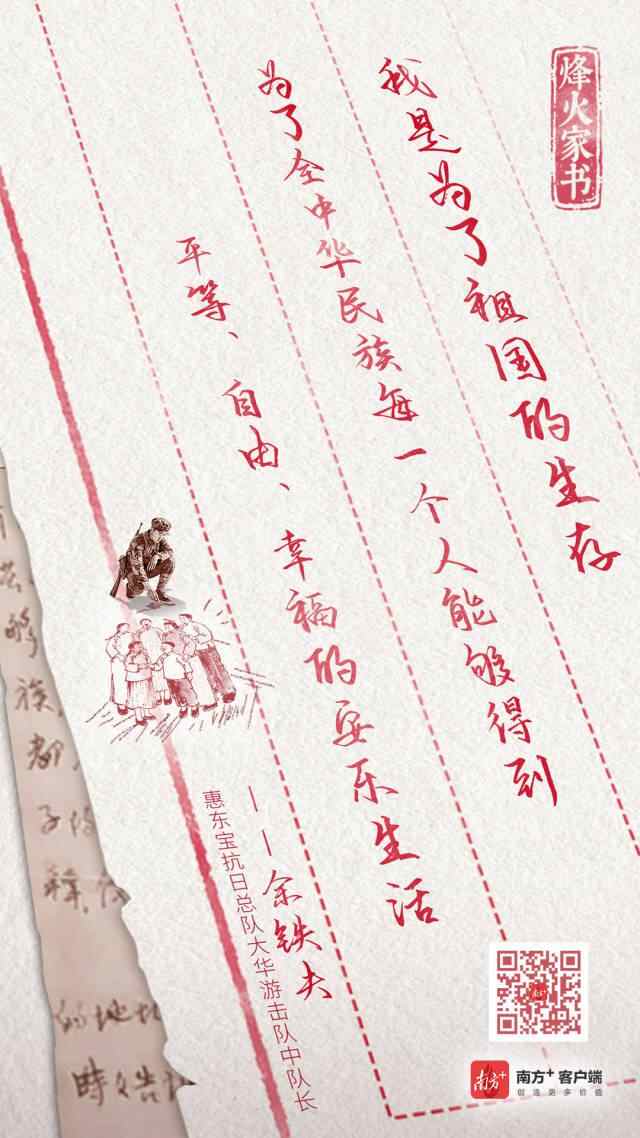 烽火家书
我是为了祖国的生存
为了全中华民族每一个人能够得到
平等、自由、幸福的安乐生活
——余铁夫
惠东宝抗日总队大华游击队中队长
够
族,
都,
子
的地址
時
南方+
南方+ 客户端
创造更多价值